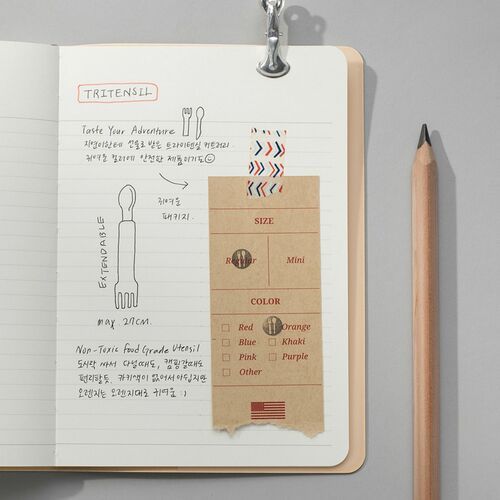 TRITENSIL
Taste Your Adventure
지영이한테 선물로 받은 트라이텐실 커트러리.
귀여운 컬러에 안전한 제품이기도
귀여운
패키지.
EXTENDABLE
max 27CM.
Non-Toxic Food Grade Utensil
도시락 싸서 다닐때도, 캠핑갈때도
편리할듯. 카키색이 없어서 아쉽지만
오렌지는 오렌지대로 귀여움 :)
SIZE
Regular
Mini
COLOR
Red
Orange
Blue
Khaki
Pink
Purple
Other